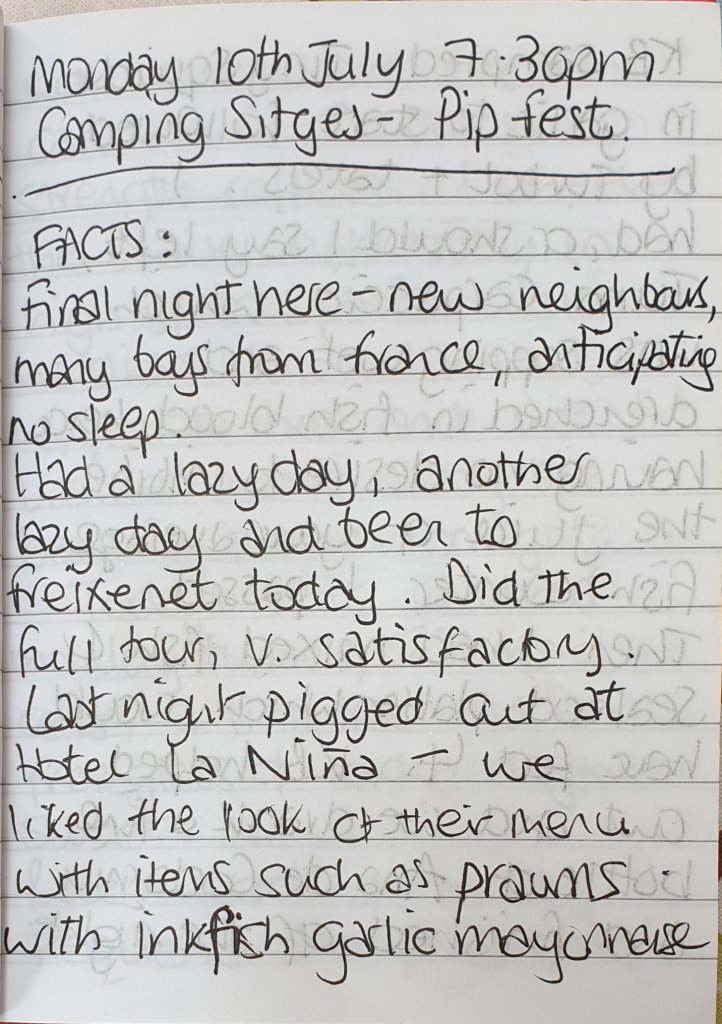 Monday 10th July 7.30pm
Camping Sitges - Pip fest.
FACTS:
final night here - new neighbours,
many boys from france, anticipating
no sleep.
Had a lazy day, another
lazy day and been to
freixenet today. Did the
full tour, v. satisfactory.
Last night pigged out at
Hotel La Niña - we
liked the look of their menu
with items such as prawns
with inkfish garlic mayonnaise